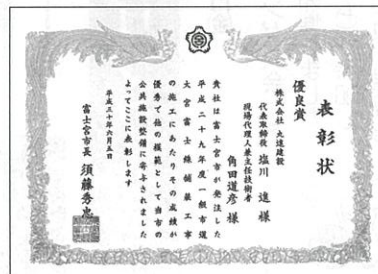 表彰状
優良賞
株式会社 大道建設
代表取締役 塩川 進 様
現場代理人兼主任技術者
角田道彦 様
貴社は富士宮市が発注した
平成二十九年度一級市道
大宮富士線舗装工事
の施工にあたりその成績が
優秀で他の模範として当市の
公共施設整備に寄与されました
よってここに表彰します
平成三十年六月五日
富士宮市長 須藤秀忠